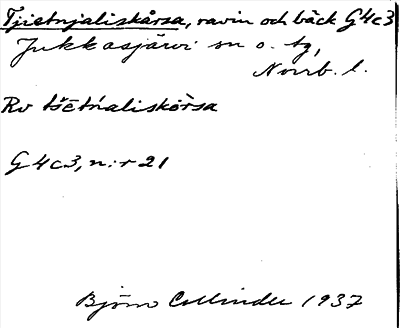 Tjietnjaliskårsa, ravin och bäck G4c3
Jukkasjärvi sn o. tg,
Norrb. l.
Rv tšētńaliskōrsa
G4c3, n:r 21
Björn Collinder 1937